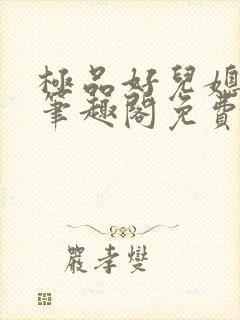 極品好兒媳
筆趣閣免費
嚴孝燮